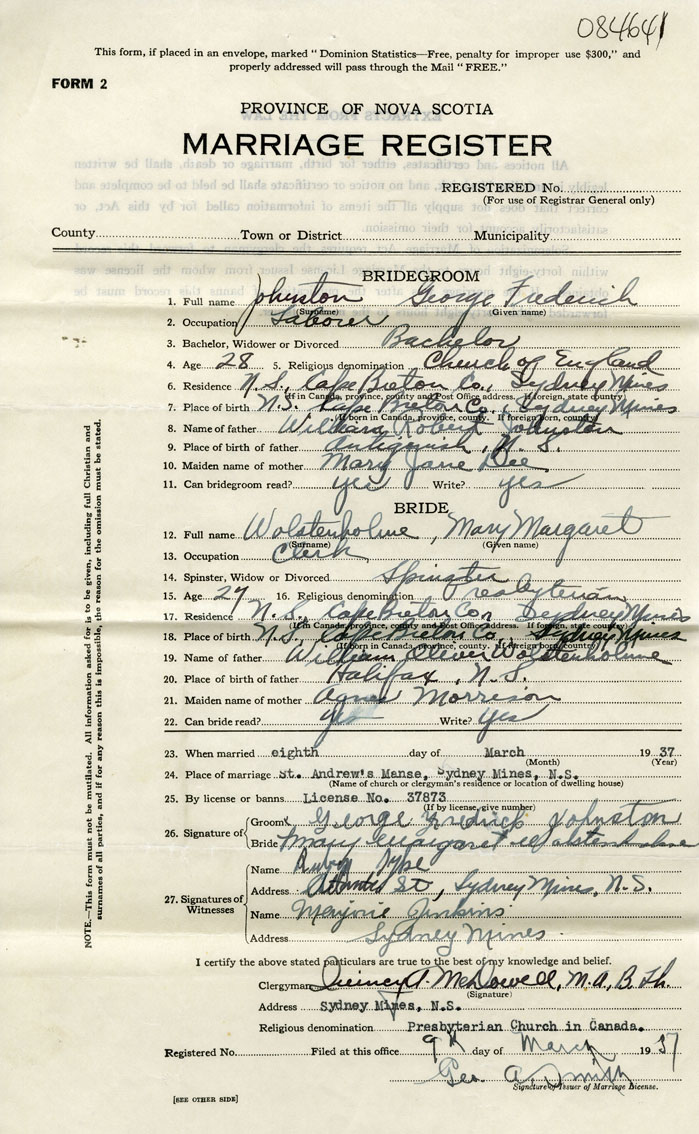 084641
This form, if placed in an envelope, marked "Dominion Statistics—Free, penalty for improper use $300," and
properly addressed will pass through the Mail "FREE."
FORM 2
PROVINCE OF NOVA SCOTIA
MARRIAGE REGISTER
REGISTERED No.
(For use of Registrar General only)
County Town or District Municipality
BRIDEGROOM
1. Full name Johnston George Frederick
(Surname) (Given name)
2. Occupation Laborer
3. Bachelor, Widower or Divorced Bachelor
4. Age 28 5. Religious denomination Church of England
6. Residence N.S., Cape Breton Co., Sydney Mines
(If in Canada, province, county and Post Office address. If foreign, state country)
7. Place of birth N.S. Cape Breton Co., Sydney Mines
(If born in Canada, province, county. If foreign born, country)
8. Name of father William Robert Johnston
9. Place of birth of father Antigonish, N.S.
10. Maiden name of mother Mary Jane
11. Can bridegroom read? yes Write? yes
BRIDE
12. Full name Wolstenholme, Mary Margaret
(Surname) (Given name)
13. Occupation Clerk
14. Spinster, Widow or Divorced Spinster
15. Age 27 16. Religious denomination Presbyterian
17. Residence N.S., Cape Breton Co., Sydney Mines
(If in Canada, province, county and Post Office address. If foreign, state country)
18. Place of birth N.S., Cape Breton Co., Sydney Mines
(If born in Canada, province, county. If foreign born, country)
19. Name of father William Oliver Wolstenholme
20. Place of birth of father Halifax, N.S.
21. Maiden name of mother Agnes Morrison
22. Can bride read? yes Write? yes
23. When married eighth day of March 1937
(Month) (Year)
24. Place of marriage St. Andrew's Manse, Sydney Mines, N.S.
(Name of church or clergyman's residence or location of dwelling house)
25. By license or banns License No. 37873
(If by license, give number)
26. Signature of Groom George Fredrick Johnston
Bride Mary Margaret Wolstenholme
27. Signatures of Witnesses
Name Ruby
Address Atlantic St, Sydney Mines, N.S.
Name Marjorie Jinkins
Address Sydney Mines
I certify the above stated particulars are true to the best of my knowledge and belief.
Clergyman Quincy A. McDowell, M.A., B.Th.
(Signature)
Address Sydney Mines, N.S.
Religious denomination Presbyterian Church in Canada.
Registered No. Filed at this office 9th day of March 1937
Geo. A. Smith
Signature of Issuer of Marriage License.
[SEE OTHER SIDE]
NOTE.—This form must not be mutilated. All information asked for is to be given, including full Christian and
surnames of all parties, and if for any reason this is impossible, the reason for the omission must be stated.